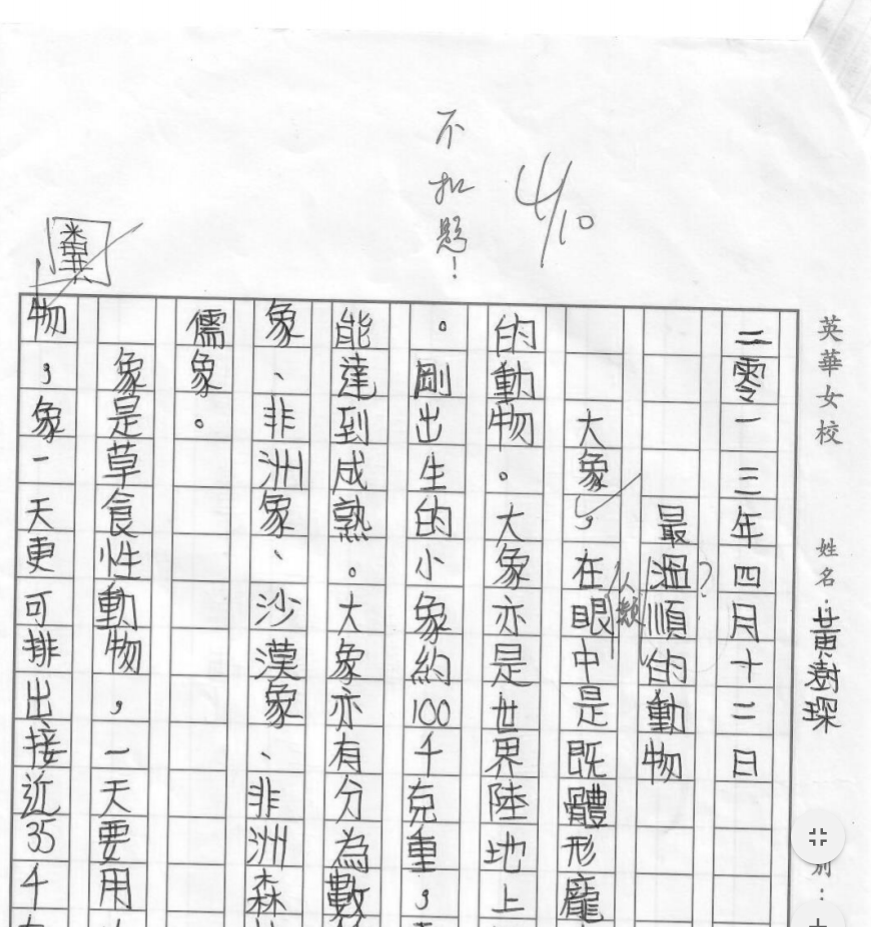 英華女校 姓名：黃澍琛 別：
二零一三年四月十二日
最溫順的動物
?
大象，在眼中是既體形龐
人類
的動物。大象亦是世界陸地上
。剛出生的小象約100千克重，
能達到成熟。大象亦有分為數
象、非洲象、沙漠象、非洲森
儒象。
象是草食性動物，一天要用
物，象一天更可排出接近35千
糞
不扣題！
4/10